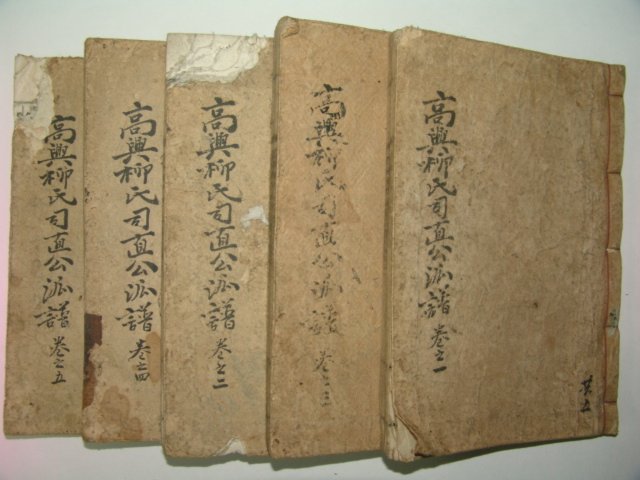 高興柳氏司直公派譜 卷之一
共五
高興柳氏司直公派譜 卷之三
高興柳氏司直公派譜 卷之二
高興柳氏司直公派譜 卷之四
高興柳氏司直公派譜 卷之五